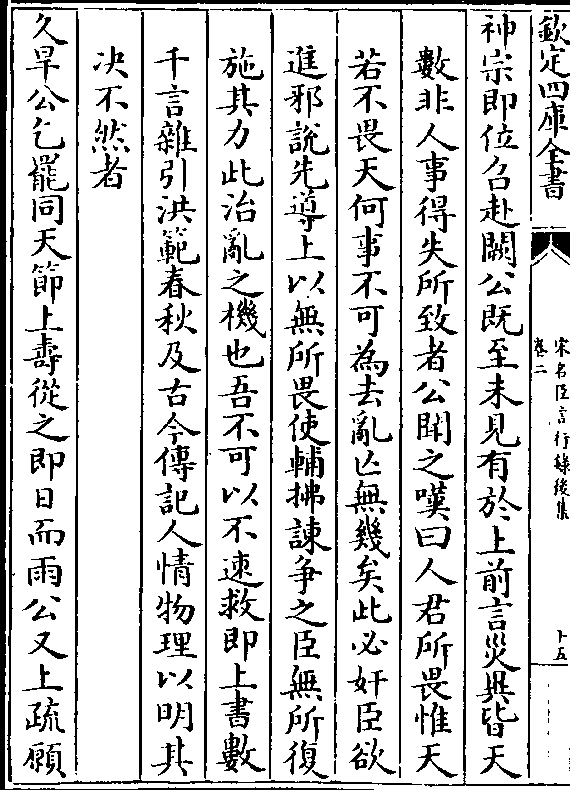 欽定四庫全書
宋名臣言行録後集
卷二
十五
神宗即位召赴闕公既至未見有於上前言災異皆天
數非人事得失所致者公聞之嘆曰人君所畏惟天
若不畏天何事不可為去亂亡無幾矣此必奸臣欲
進邪說先導上以無所畏使輔拂諫争之臣無所復
施其力此治亂之機也吾不可以不速救即上書數
千言雜引洪範春秋及古今傳記人情物理以明其
决不然者
久旱公乞罷同天節上壽從之即日而雨公又上疏願